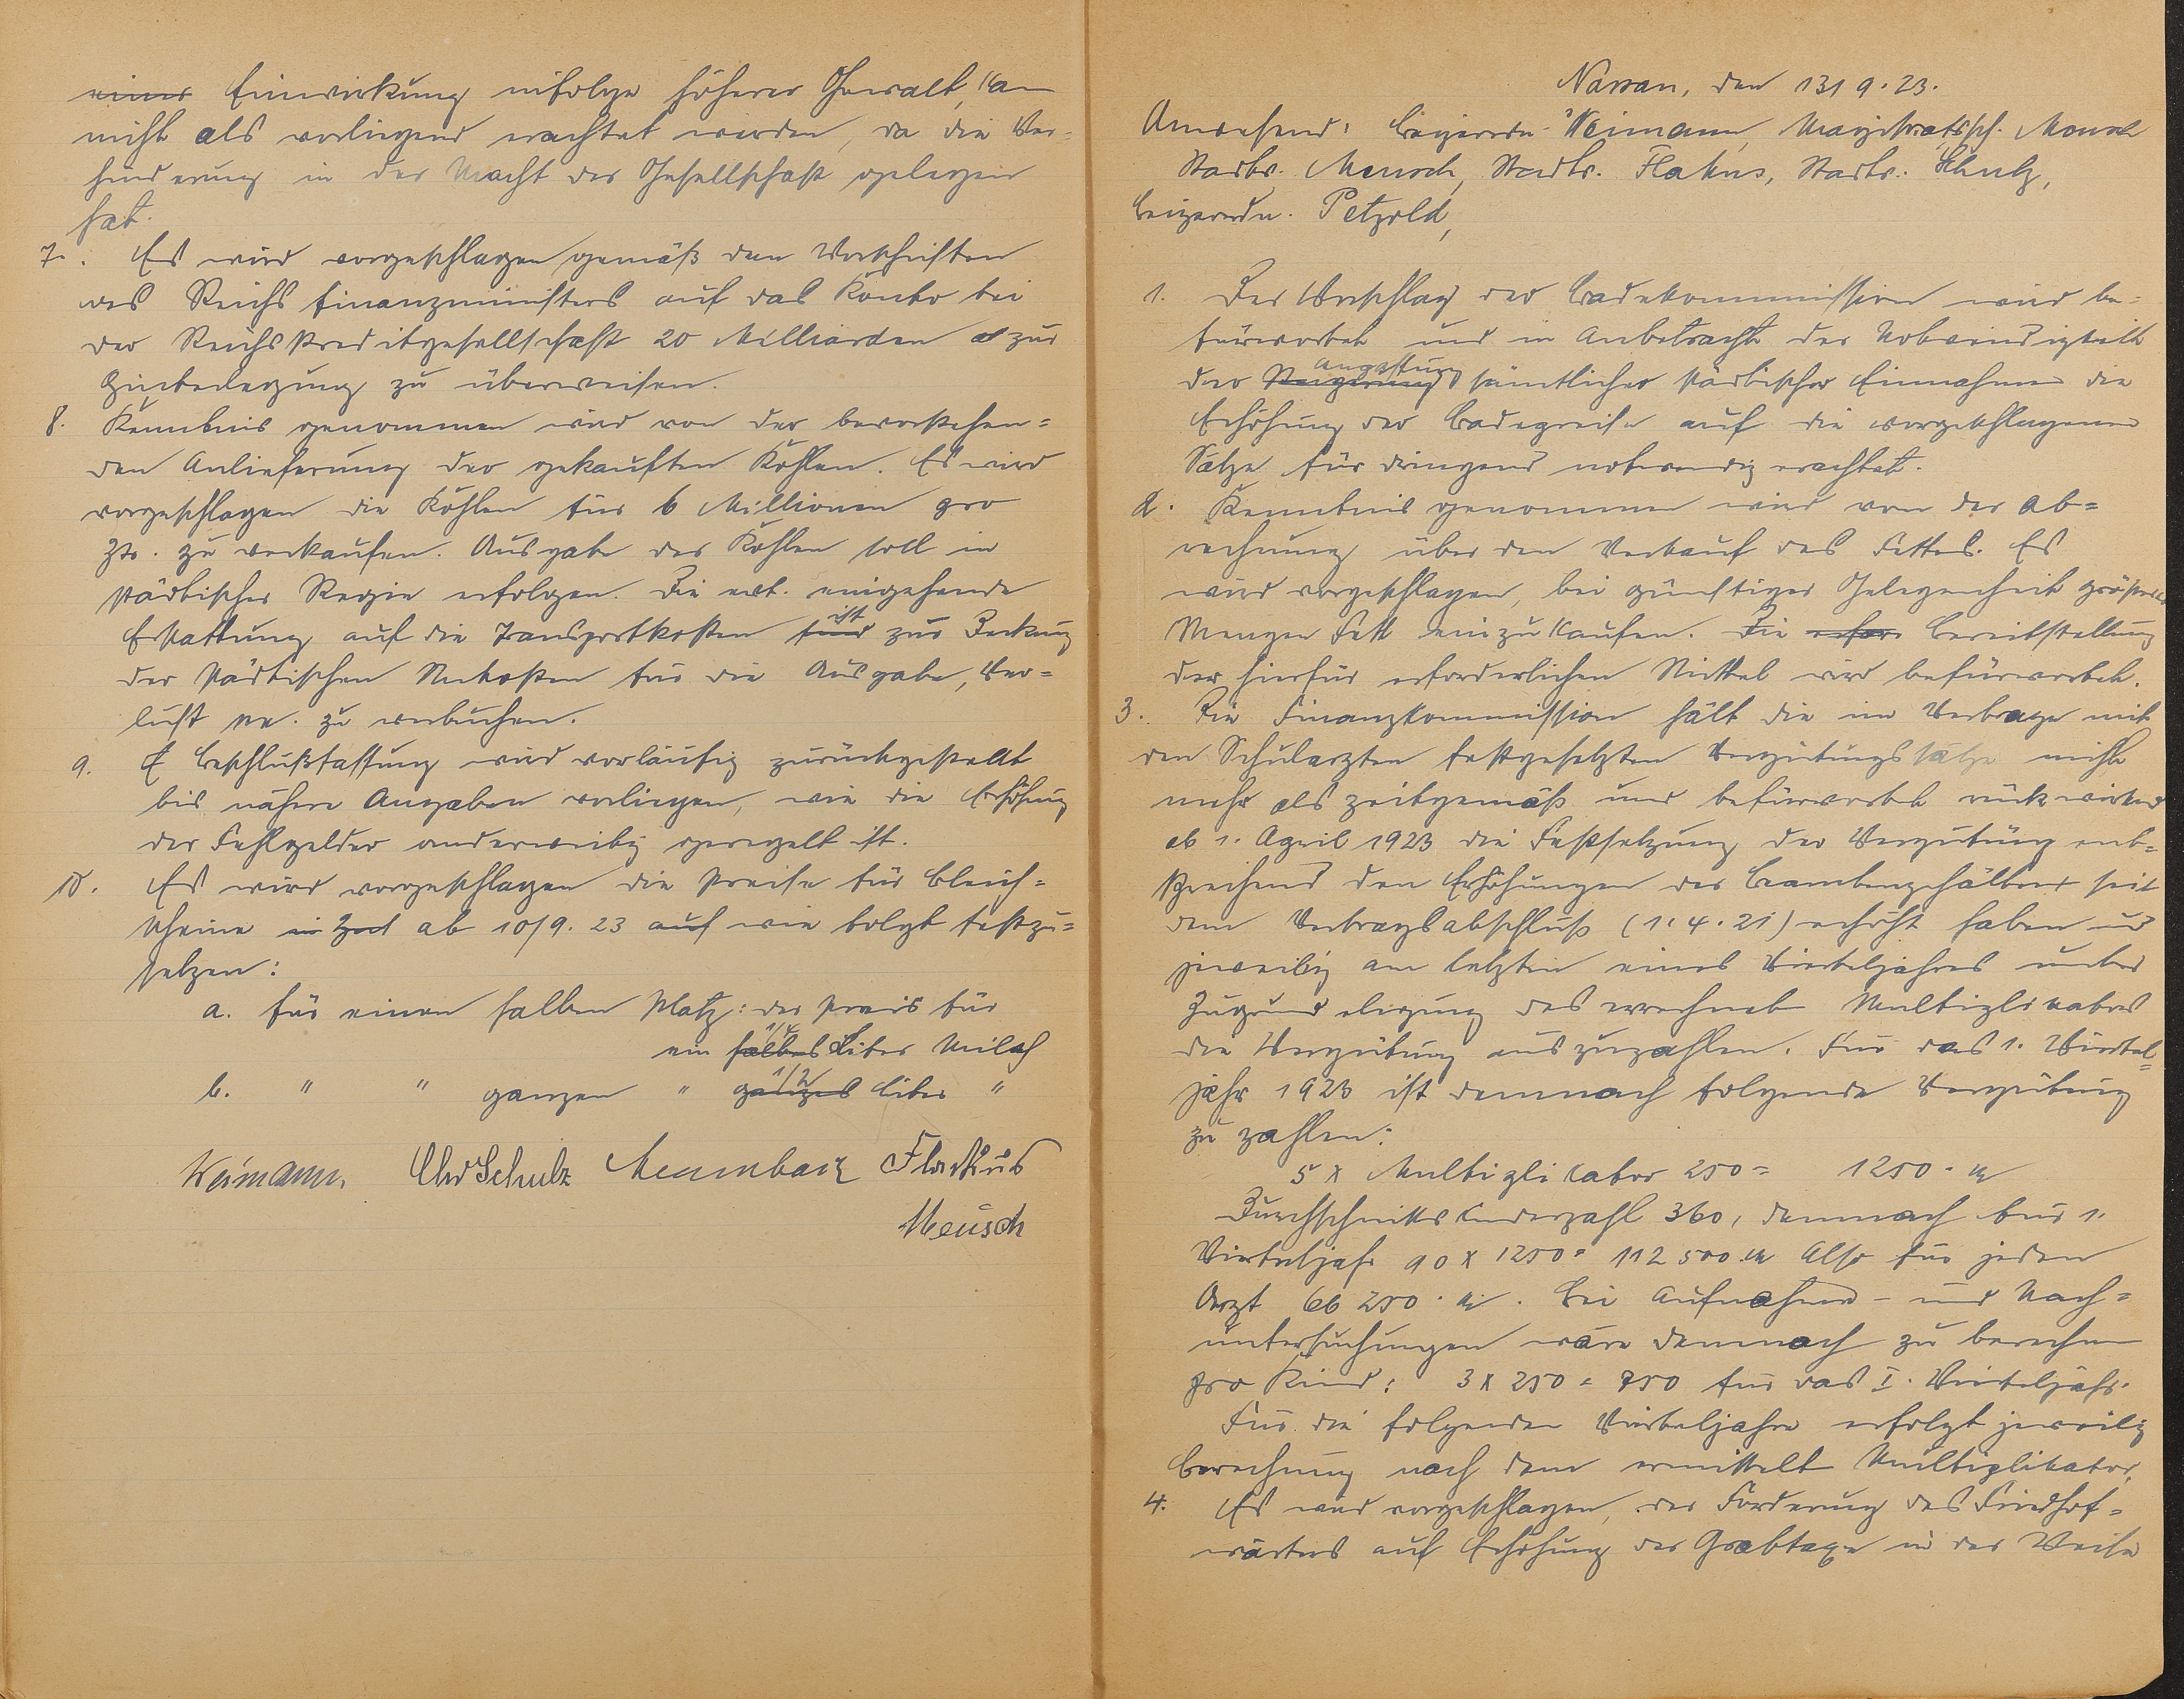 einer Einwirkung infolge höherer Gewalt, kan
nicht als vorliegend erachtet werden, da die Ver-
hinderung in der Macht der Gesellschaft gelegen
hat.
7. Es wird vorgeschlagen gemäß den Vorschriften
des Reichsfinanzministers auf das Konto bei
der Reichskreditgesellschaft 20 Milliarden zur
zu überweisen.
8. Kenntnis genommen wird von der bevorstehen=
den Anlieferung der gekauften Kohlen. Es wird
vorgeschlagen die Kohlen für 6 Millionen pro
Ztr. zu verkaufen. Ausgabe der Kohlen soll in
städtischer Regie erfolgen. Die evt. eingehende
Erstattung auf die Transportkosten sind ist zur Deckung
der städtischen Unkosten für die Ausgabe, Ver=
lust pp. zu verbuchen.
9. Beschlußfassung wird vorläufig zurückgestellt
bis nähere Angaben vorliegen, wie die Erhöhung
der Fehlgelder anderweitig geregelt ist.
10. Es wird vorgeschlagen die Preise für Bleich=
scheine ab 10/9. 23 auf wie folgt festzu=
setzen:
a. für einen halben Platz: der Preis für
ein halbes 1/4 Liter Milch
b. " " ganzen " ganzes 1/2 Liter "
Weimann. Chr Schulz Meumbarz Flackus
Meusch
Nassau, den 13/9.23.
Anwesend: Beigeordn. Weimann, Magistratssch. Meusch
Stadtv. Meusch, Stadtv. Flakus, Stadtv. Schulz,
Beigeordn. Petzold,
1. Der Vorschlag der Badekommission wird be=
fürwortet und in Anbetracht der Notwendigkeit
der Steigerung Anpassung sämtlicher städtischer Einnahmen die
Erhöhung der Badepreise auf die vorgeschlagenen
Sätze für dringend notwendig erachtet.
2. Kenntnis genommen wird von der Ab=
rechnung über den Verkauf des Fettes. Es
wird vorgeschlagen, bei günstiger Gelegenheit größere
Mengen Fett einzukaufen. Die erfor Bereitstellung
der hierfür erforderlichen Mittel wird befürwortet.
3. Die Finanzkommission hält die im Vertrage mit
den Schularzten festgesetzten Vergütungssätze nicht
mehr als zeitgemäß und befürwortet rückwirkend
ab 1. April 1923 die Festsetzung der Vergütung ent=
sprechend den Erhöhungen der Beamtengehälter seit
dem Vertragsabschluß (1.4.21) erhöht haben und
jeweilig am letzten eines Vierteljahres unter
Zugrundelegung des errechnet Multiplikators
die Vergütung auszuzahlen. Für das 1. Viertel=
jahr 1923 ist demnach folgende Vergütung
zu zahlen:
5 x Multiplikator 250 = 1250.- M
Durchschnittskinderzahl 360, demnach für 1.
Vierteljahr 90 x 1250 = 112 500 M Also für jeden
Arzt 66 250.- M. Bei Aufnahme- und Nach=
untersuchungen wäre demnach zu berechnen
pro Kind: 3 x 250 = 750 für das I. Vierteljahr.
Für die folgenden Vierteljahre erfolgt jeweilig
Berechnung nach dem ermittelt Multiplikator.
4. Es wird vorgeschlagen, der Forderung des Friedhof=
wärters auf Erhöhung der Grabtaxe in der Weise